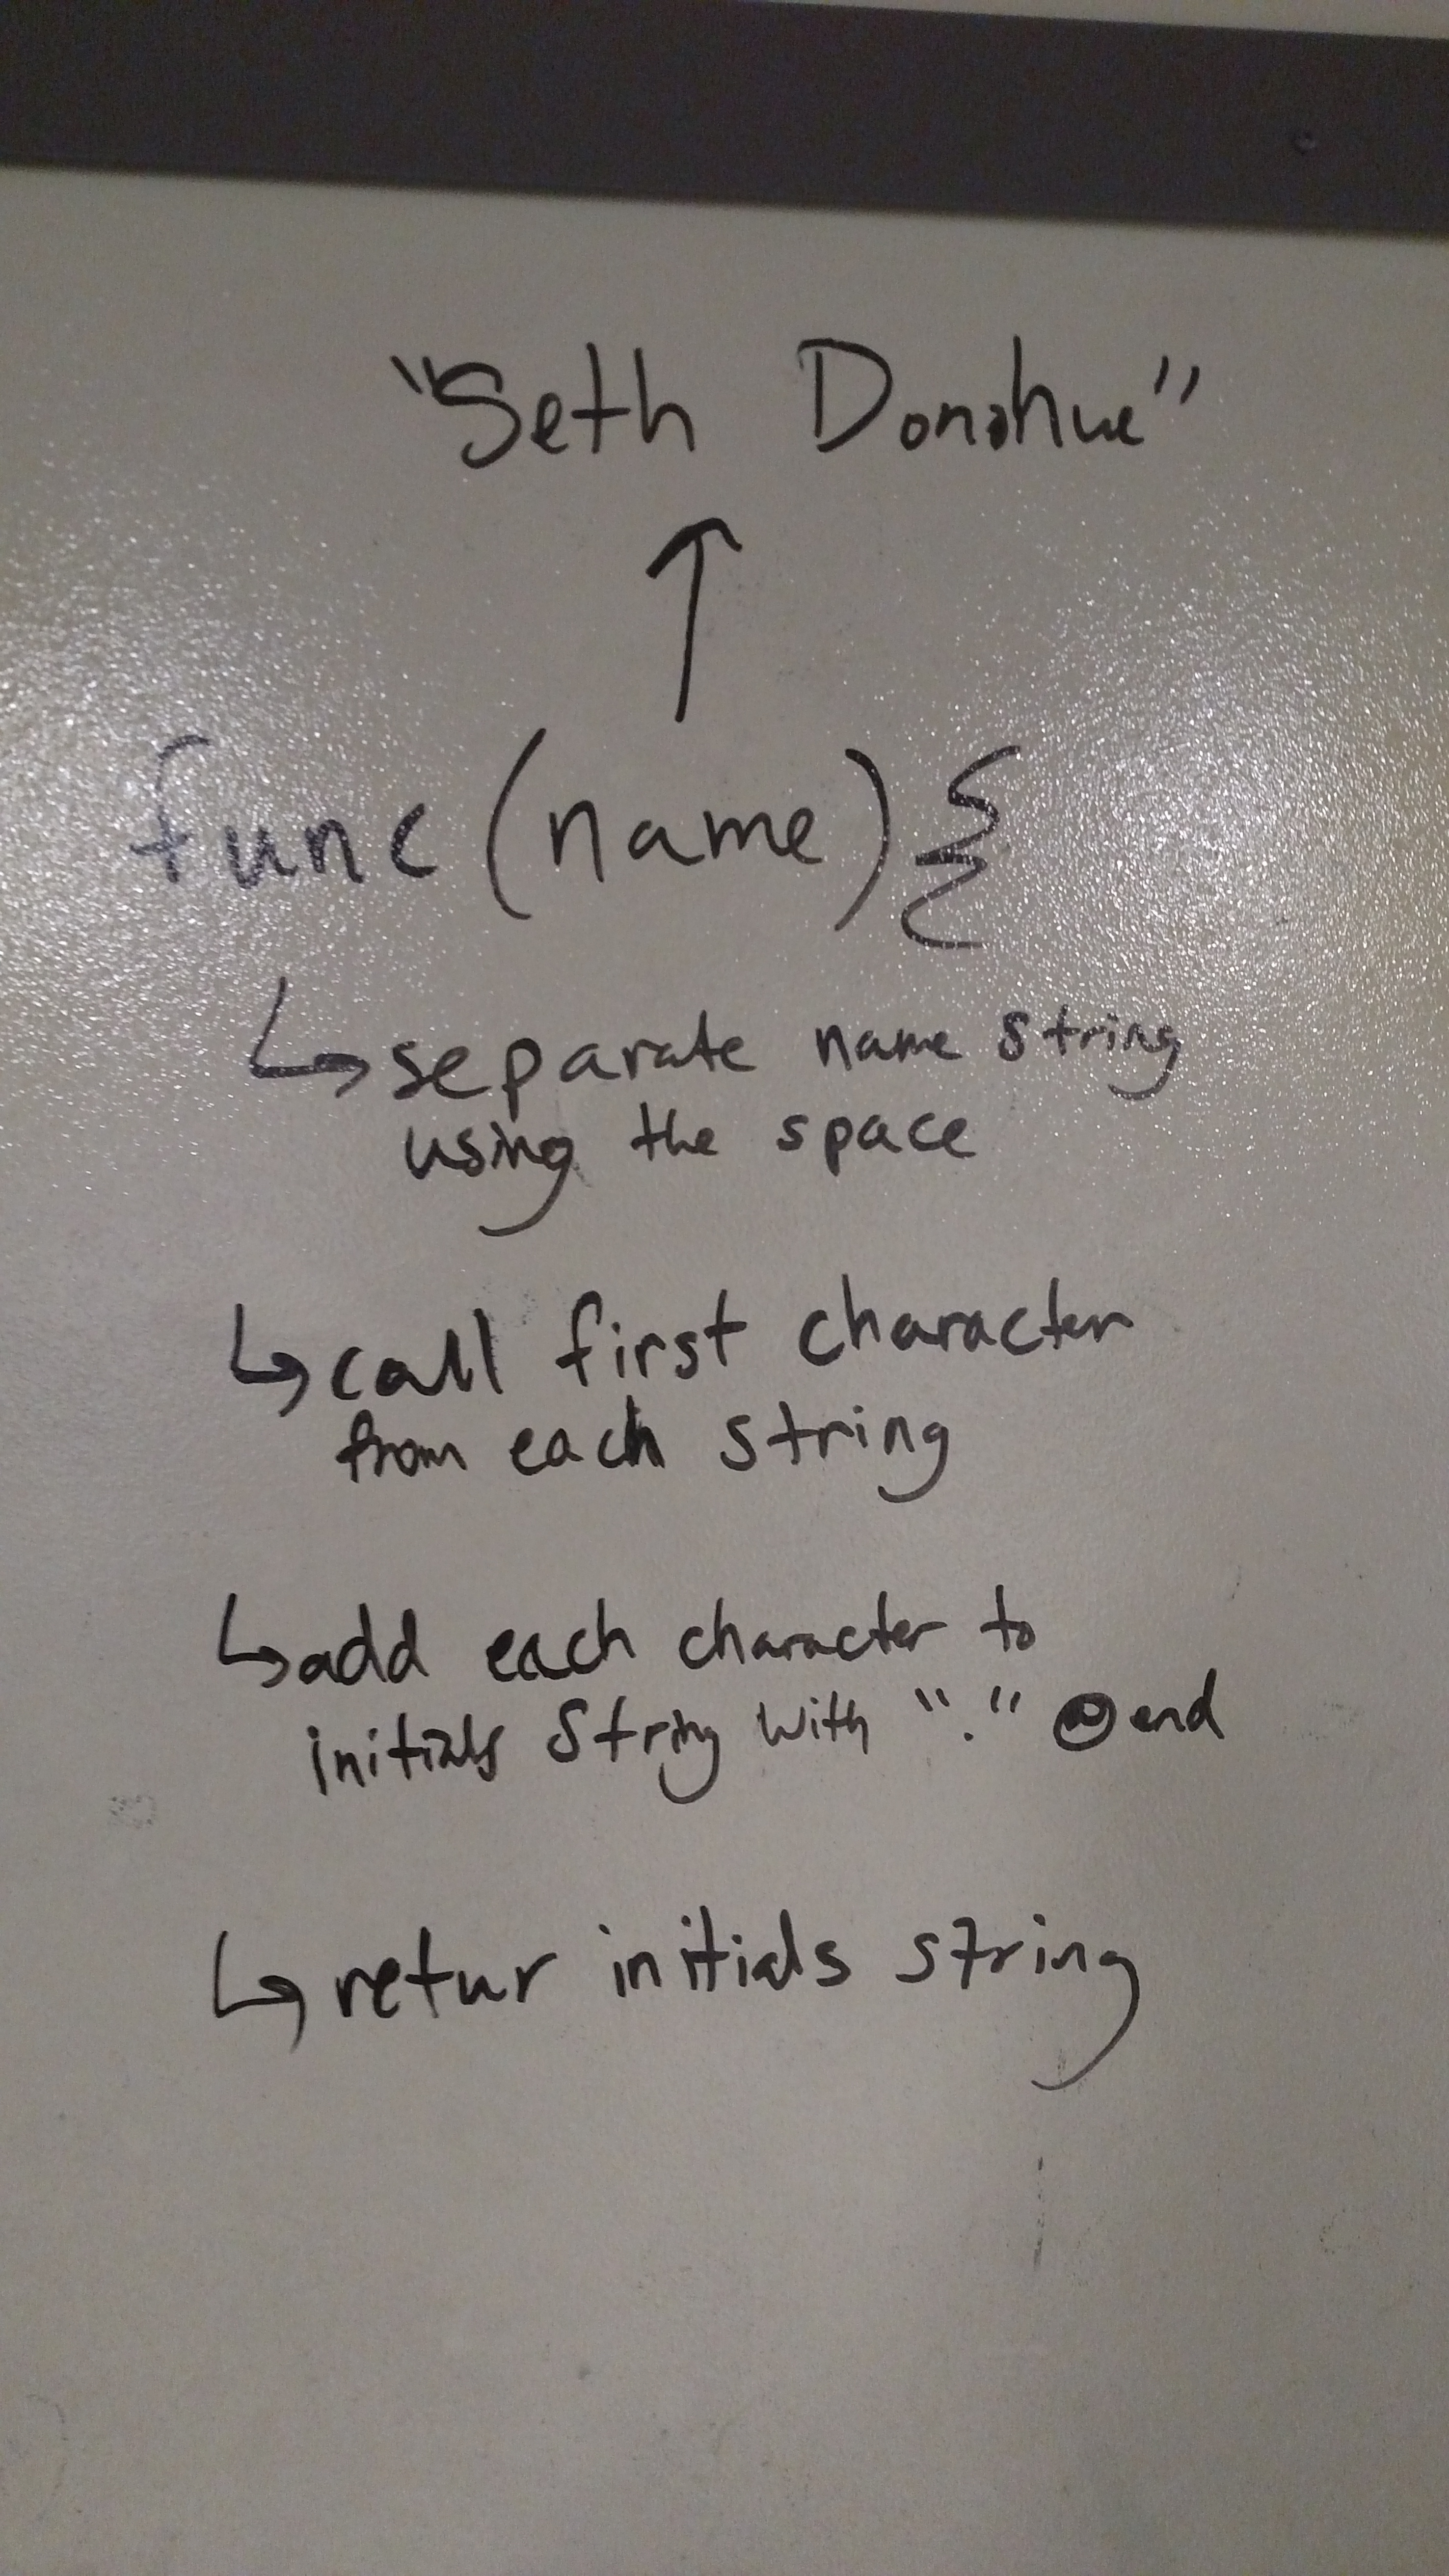 "Seth Donahue"
func(name){
separate name string
using the space
call first character
from each string
add each character to
initials string with "." @ end
retur initials string